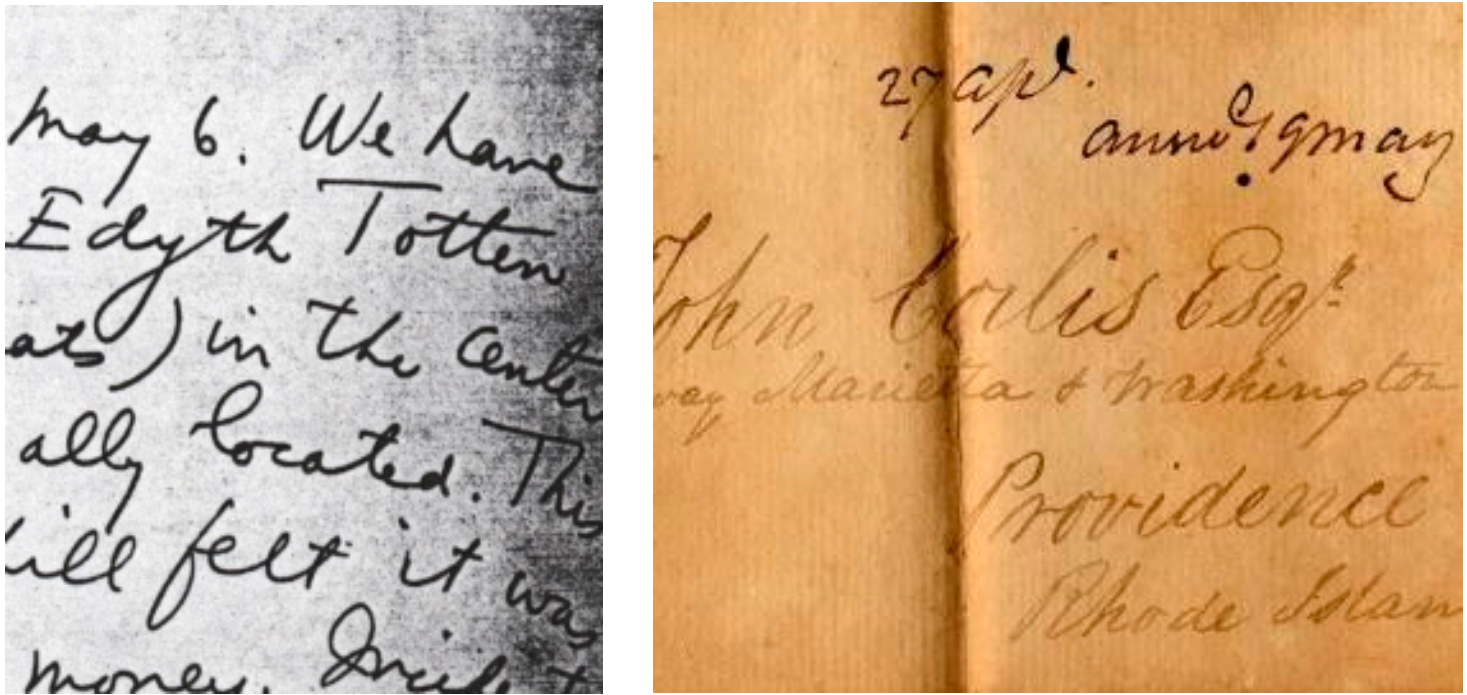 may 6. We have
Edyth Totten
ats) in the center
ally located. This
ill felt it was
money.
27 apl.
9 may
John Corlis Esqr.
way Marietta & Washington
Providence
Rhode Islan